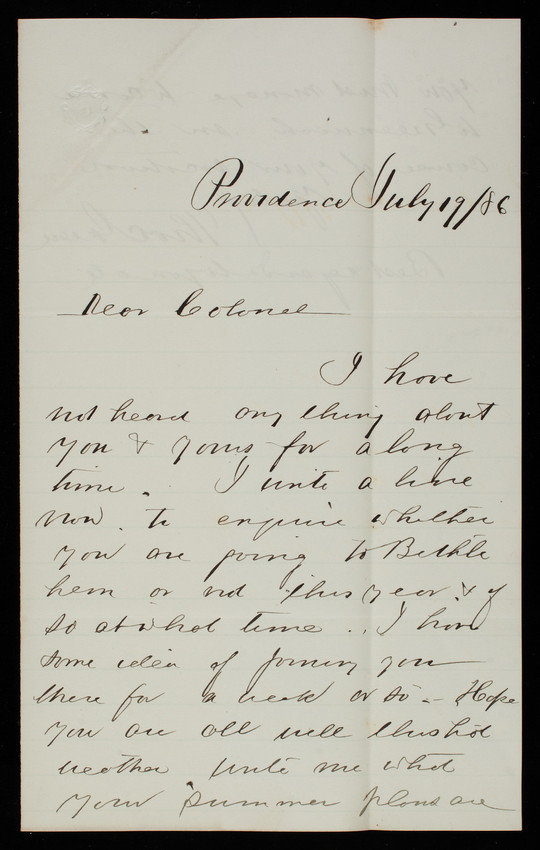 Providence July 19/86
Dear Colonel
I have
not heard any thing about
you & yours for a long
time. I write a line
now. to enquire whether
you are going to Bethle
hem or not this year & if
so at what time.. I have
some idea of joining you
there for a week or so - Hope
you are all well this hot
weather. write me what
your summer plans are